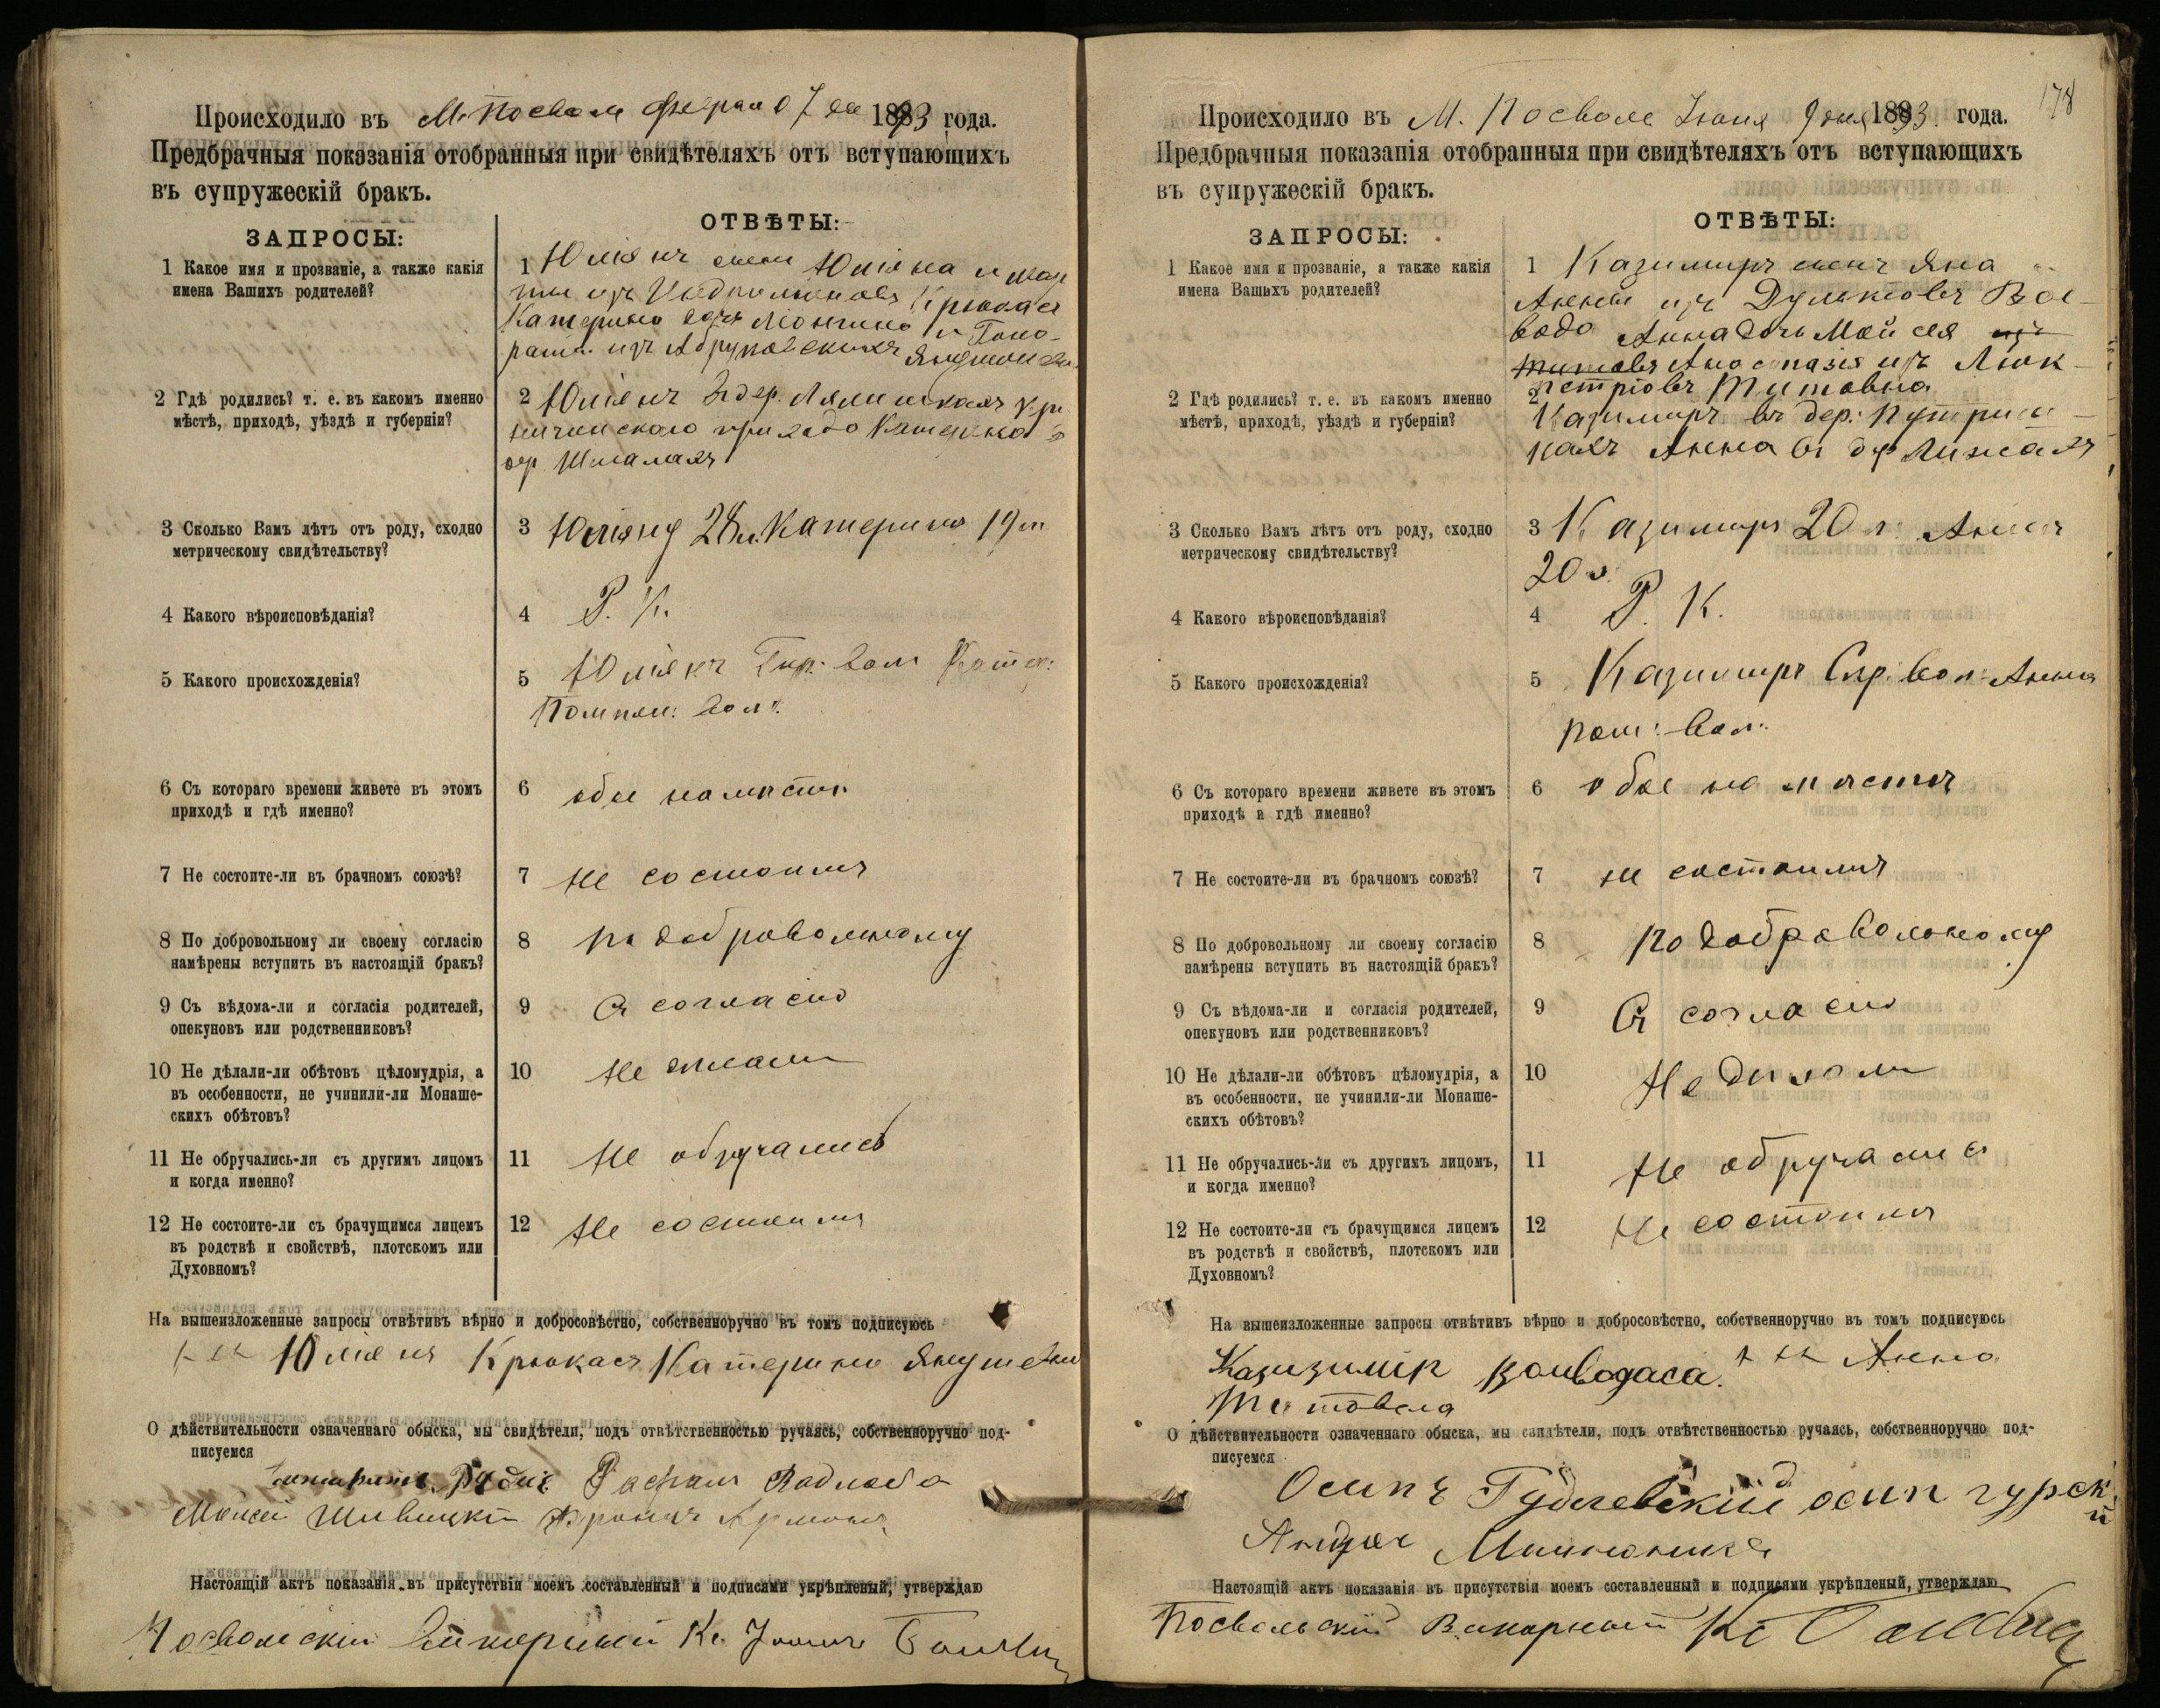 Происходило въ М. Посволе Февраля 7 дня 1893 года.
Предбрачныя показанія отобранныя при свидѣтеляхъ отъ вступающихъ
въ супружескій бракъ.
ЗАПРОСЫ:
ОТВѢТЫ:
1 Какое имя и прозваніе, а также какія
имена Вашихъ родителей?
1 Юліянъ сынъ Юліяна и
изъ
Катерина дочь и
изъ
2 Гдѣ родились? т. е. въ какомъ именно
мѣстѣ, приходѣ, уѣздѣ и губерніи?
2 Юліянъ в дер.
прихода Катерина в
дер
3 Сколько Вамъ лѣтъ отъ роду, сходно
метрическому свидѣтельству?
3 Юліяну 28 л. Катерина 19 л
4 Какого вѣроисповѣданія?
4 Р. К.
5 Какого происхожденія?
5 Юліянъ вол. Катер:
Помпян: вол:
6 Съ котораго времени живете въ этомъ
приходѣ и гдѣ именно?
6 обое на мѣстѣ
7 Не состоите-ли въ брачномъ союзѣ?
7 не состоимъ
8 По добровольному ли своему согласію
намѣрены вступить въ настоящій бракъ?
8 по добровольному
9 Съ вѣдома-ли и согласія родителей,
опекуновъ или родственниковъ?
9 Съ согласія
10 Не дѣлали-ли обѣтовъ цѣломудрія, а
въ особенности, не учинили-ли Монаше-
скихъ обѣтовъ?
10 Не дѣлали
11 Не обручались-ли съ другимъ лицомъ
и когда именно?
11 Не обручались
12 Не состоите-ли съ брачущимся лицемъ
въ родствѣ и свойствѣ, плотскомъ или
Духовномъ?
12 Не состоимъ
На вышеизложенные запросы отвѣтивъ вѣрно и добросовѣстно, собственноручно въ томъ подписуюсь
Юліянъ Крюкасъ Катерина
О дѣйствительности означеннаго обыска, мы свидѣтели, подъ отвѣтственностью ручаясь, собственноручно под-
писуемся
Рафалъ
Моисей
Настоящій актъ показанія въ присутствіи моемъ составленный и подписями укрѣпленый, утверждаю
Посвольскій Викарный Кс.
178
Происходило въ М. Посволе Іюня 9 дня 1893 года.
Предбрачныя показанія отобранныя при свидѣтеляхъ отъ вступающихъ
въ супружескій бракъ.
ЗАПРОСЫ:
ОТВѢТЫ:
1 Какое имя и прозваніе, а также какія
имена Вашихъ родителей?
1 Казимиръ сынъ Яна
Анны изъ Дульковъ Вое-
вода Анна дочь Мойсея изъ
Титовъ изъ
Титовна
2 Гдѣ родились? т. е. въ какомъ именно
мѣстѣ, приходѣ, уѣздѣ и губерніи?
2 Казимиръ въ дер:
Анна въ дер
3 Сколько Вамъ лѣтъ отъ роду, сходно
метрическому свидѣтельству?
3 Казимиръ 20 л: Анна
20 л.
4 Какого вѣроисповѣданія?
4 Р. К.
5 Какого происхожденія?
5 Казимиръ Скр: вол: Анна
вол:
6 Съ котораго времени живете въ этомъ
приходѣ и гдѣ именно?
6 обое на мѣстѣ
7 Не состоите-ли въ брачномъ союзѣ?
7 не состоимъ
8 По добровольному ли своему согласію
намѣрены вступить въ настоящій бракъ?
8 По добровольному
9 Съ вѣдома-ли и согласія родителей,
опекуновъ или родственниковъ?
9 Съ согласія
10 Не дѣлали-ли обѣтовъ цѣломудрія, а
въ особенности, не учинили-ли Монаше-
скихъ обѣтовъ?
10 Не дѣлали
11 Не обручались-ли съ другимъ лицомъ,
и когда именно?
11 Не обручались
12 Не состоите-ли съ брачущимся лицемъ
въ родствѣ и свойствѣ, плотскомъ или
Духовномъ?
12 Не состоимъ
На вышеизложенные запросы отвѣтивъ вѣрно и добросовѣстно, собственноручно въ томъ подписуюсь
воиводаса. Анна
Титовна
О дѣйствительности означеннаго обыска, мы свидѣтели, подъ отвѣтственностью ручаясь, собственноручно под-
писуемся
Осипъ осип гурск
й
Настоящій актъ показанія въ присутствіи моемъ составленный и подписями укрѣпленый, утверждаю
Посвольскій Викарный Кс